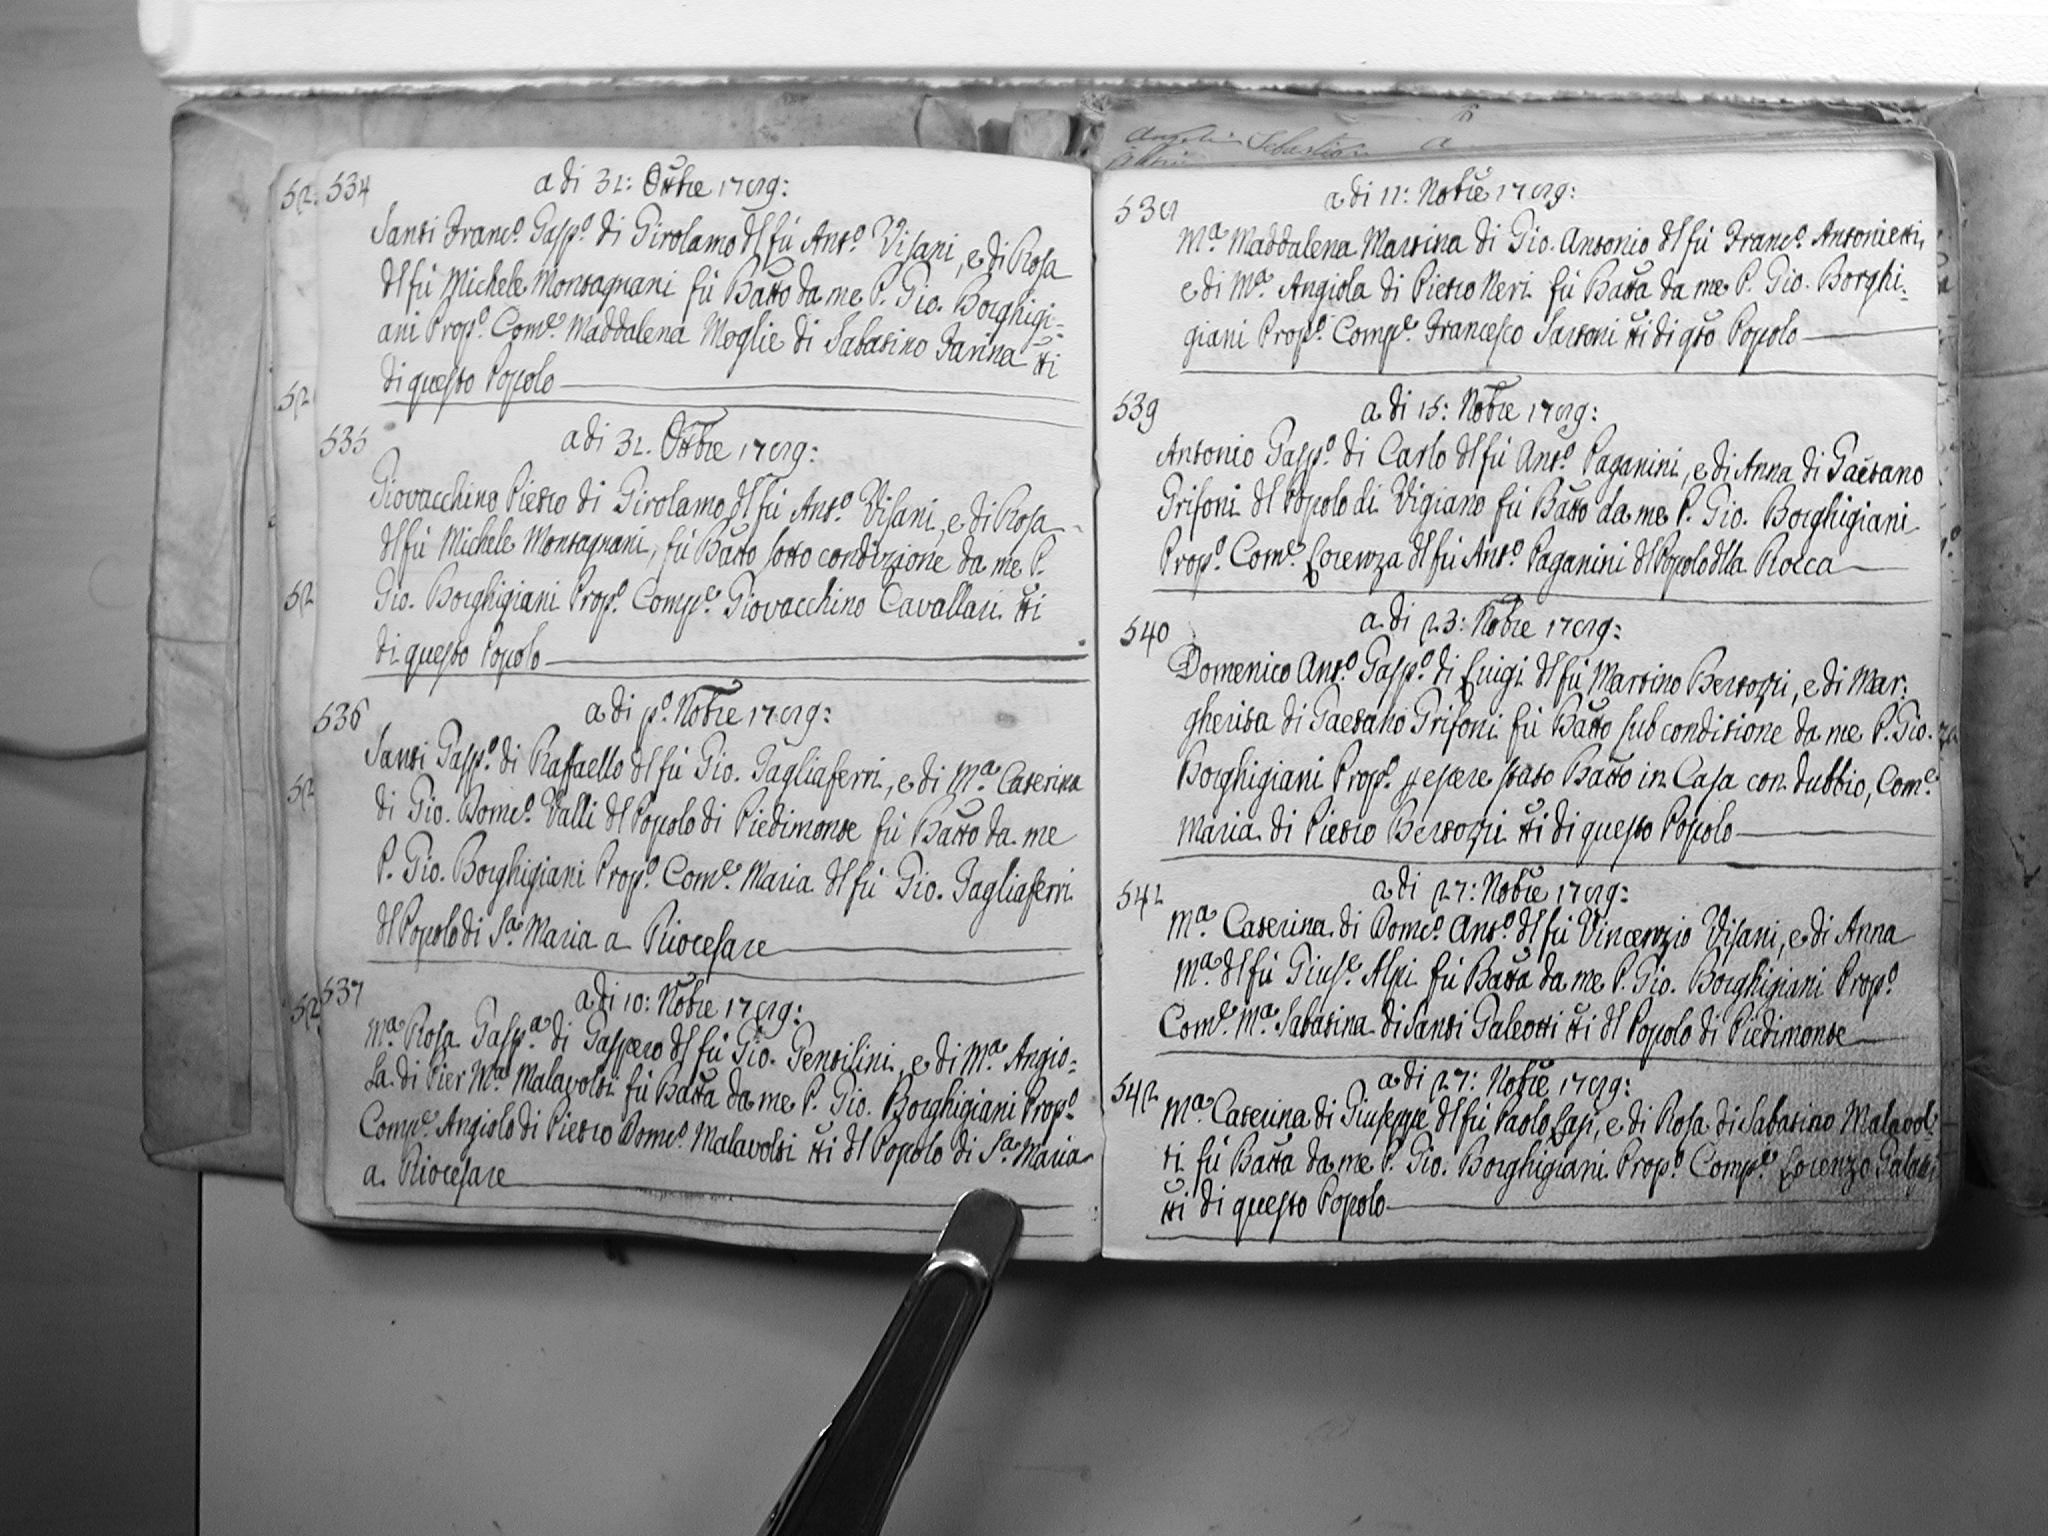 534
a di 31: Ottbre 1789:
Santi Franc.º Gasp.º di Girolamo dl fù Ant.º Visani, e di Rosa
dl fù Michele Montagnani fù Batto da me P. Gio. Borghigi=
ani Prop.º Com.e Maddalena Moglie di Sabatino Farina tti
di questo Popolo
535
a di 31. Ottbre 1789:
Giovacchino Pietro di Girolamo dl fù Ant.º Visani, e di Rosa
dl fù Michele Montagnani, fù Batto sotto condizione da me P.
Gio. Borghigiani Prop.º Comp.e Giovacchino Cavallari tti
di questo Popolo
536
a di p.º Nobre 1789:
Santi Gasp.º di Raffaello dl fù Gio. Tagliaferri, e di M.a Caterina
di Gio. Dom.co Valli dl Popolo di Piedimonte fù Batto da me
P. Gio. Borghigiani Prop.º Com.e Maria dl fù Gio. Tagliaferri
dl Popolo di S.a Maria a Riocesare
537
a di 10: Nobre 1789:
M.a Rosa Gasp.a di Gaspero dl fù Gio. Gentilini, e di M.a Angio=
la di Pier M.a Malavolti fù Batta da me P. Gio. Borghigiani Prop.º
Comp.e Angiolo di Pietro Dom.co Malavolti tti dl Popolo di S.a Maria
a Riocesare
538
a di 11: Nobre 1789:
M.a Maddalena Martina di Gio. Antonio dl fù Franc.º Antonietti,
e di M.a Angiola di Pietro Neri fù Batta da me P. Gio. Borghi=
giani Prop.º Comp.e Francesco Sartoni tti di qto Popolo
539
a di 15: Nobre 1789:
Antonio Gasp.º di Carlo dl fù Ant.º Paganini, e di Anna di Gaetano
Grifoni dl Popolo di Vigiano fù Batto da me P. Gio. Borghigiani
Prop.º Com.e Lorenza dl fù Ant.º Paganini dl Popolo dlla Rocca
540
a di 23: Nobre 1789:
Domenico Ant.º Gasp.º di Luigi dl fù Martino Bertozzi, e di Mar=
gherita di Gaetano Grifoni fù Batto sub conditione da me P. Gio.
Borghigiani Prop.º p essere stato Batto in Casa con dubbio, Com.e
Maria di Pietro Bertozzi tti di questo Popolo
541
a di 27: Nobre 1789:
M.a Caterina di Dom.co Ant.º dl fù Vincenzio Visani, e di Anna
M.a dl fù Gius.e Alpi fù Batta da me P. Gio. Borghigiani Prop.º
Com.e M.a Sabatina di Santi Galeotti tti dl Popolo di Piedimonte
542
a di 27: Nobre 1789:
M.a Caterina di Giuseppe dl fù Paolo Lapi, e di Rosa di Sabatino Malavol=
ti fù Batta da me P. Gio. Borghigiani Prop.º Comp.e Lorenzo
tti di questo Popolo